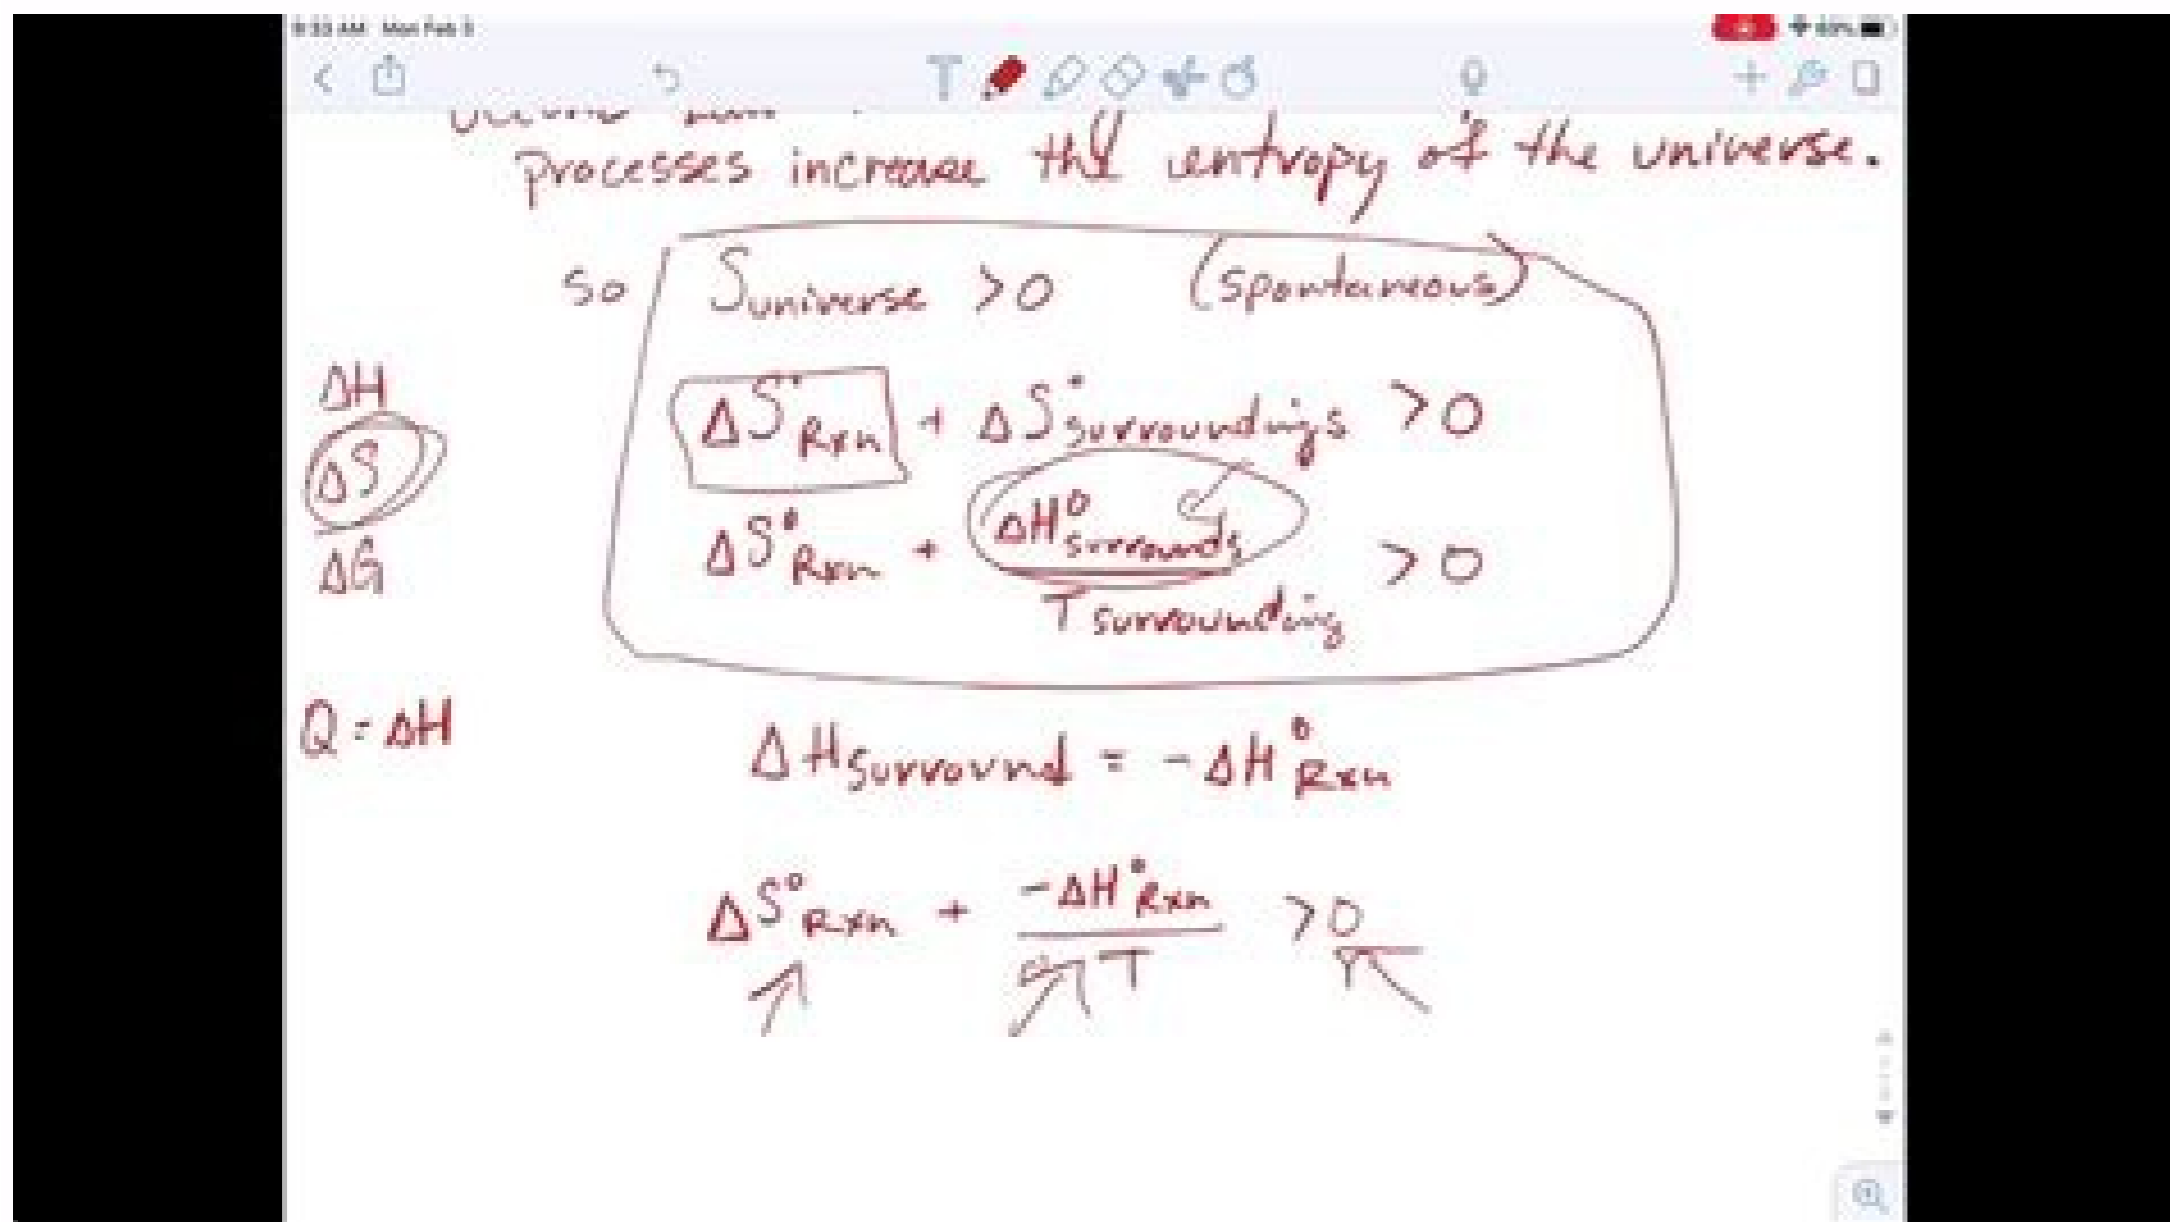 9:53 AM Mon Feb 3
processes increase the entropy of the universe.
so S universe >0 (spontaneous)
ΔH
ΔS° Rxn + ΔS° surroundings >0
ΔS
ΔS° Rxn + ΔH° surrounds / T surrounding >0
ΔG
Q = ΔH
ΔH surround = -ΔH° Rxn
ΔS° Rxn + -ΔH° Rxn / T >0